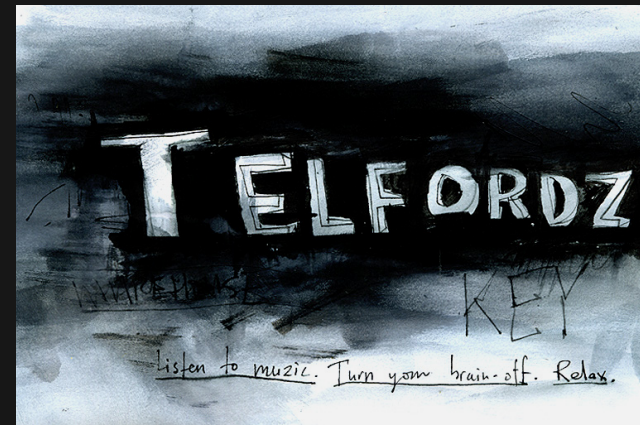 TELFORDZ
KEY
Listen to muzic. Turn your brain-off. Relax.